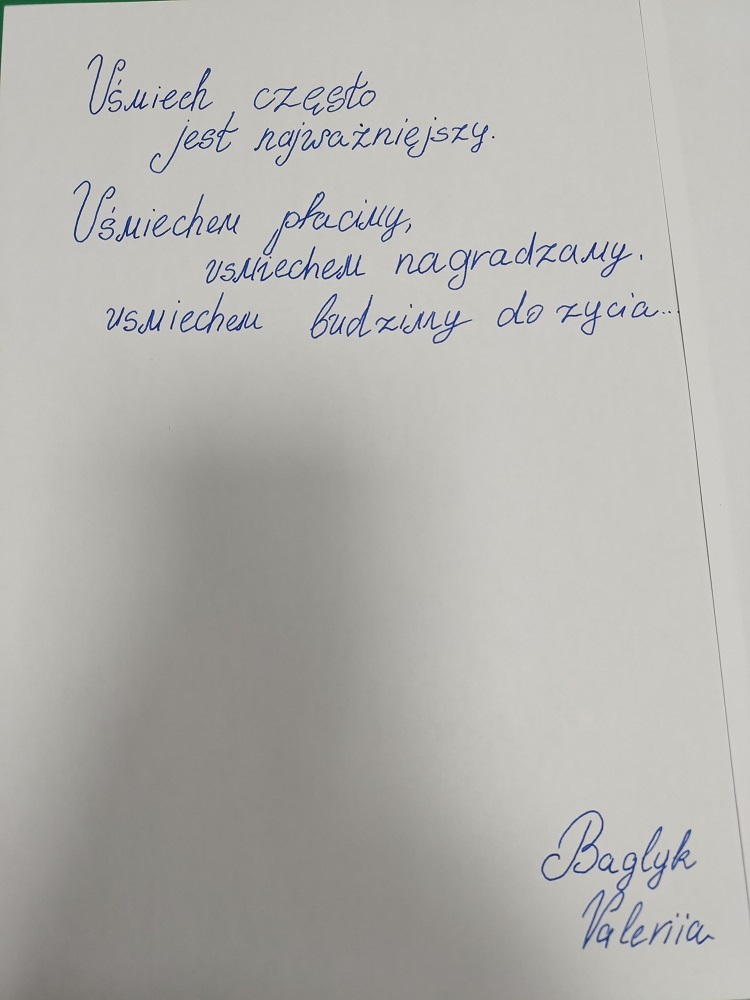 Uśmiech często
jest najważniejszy.
Uśmiechem płacimy,
usmiechem nagradzamy.
usmiechem budzimy do zycia...
Baglyk
Valeriia